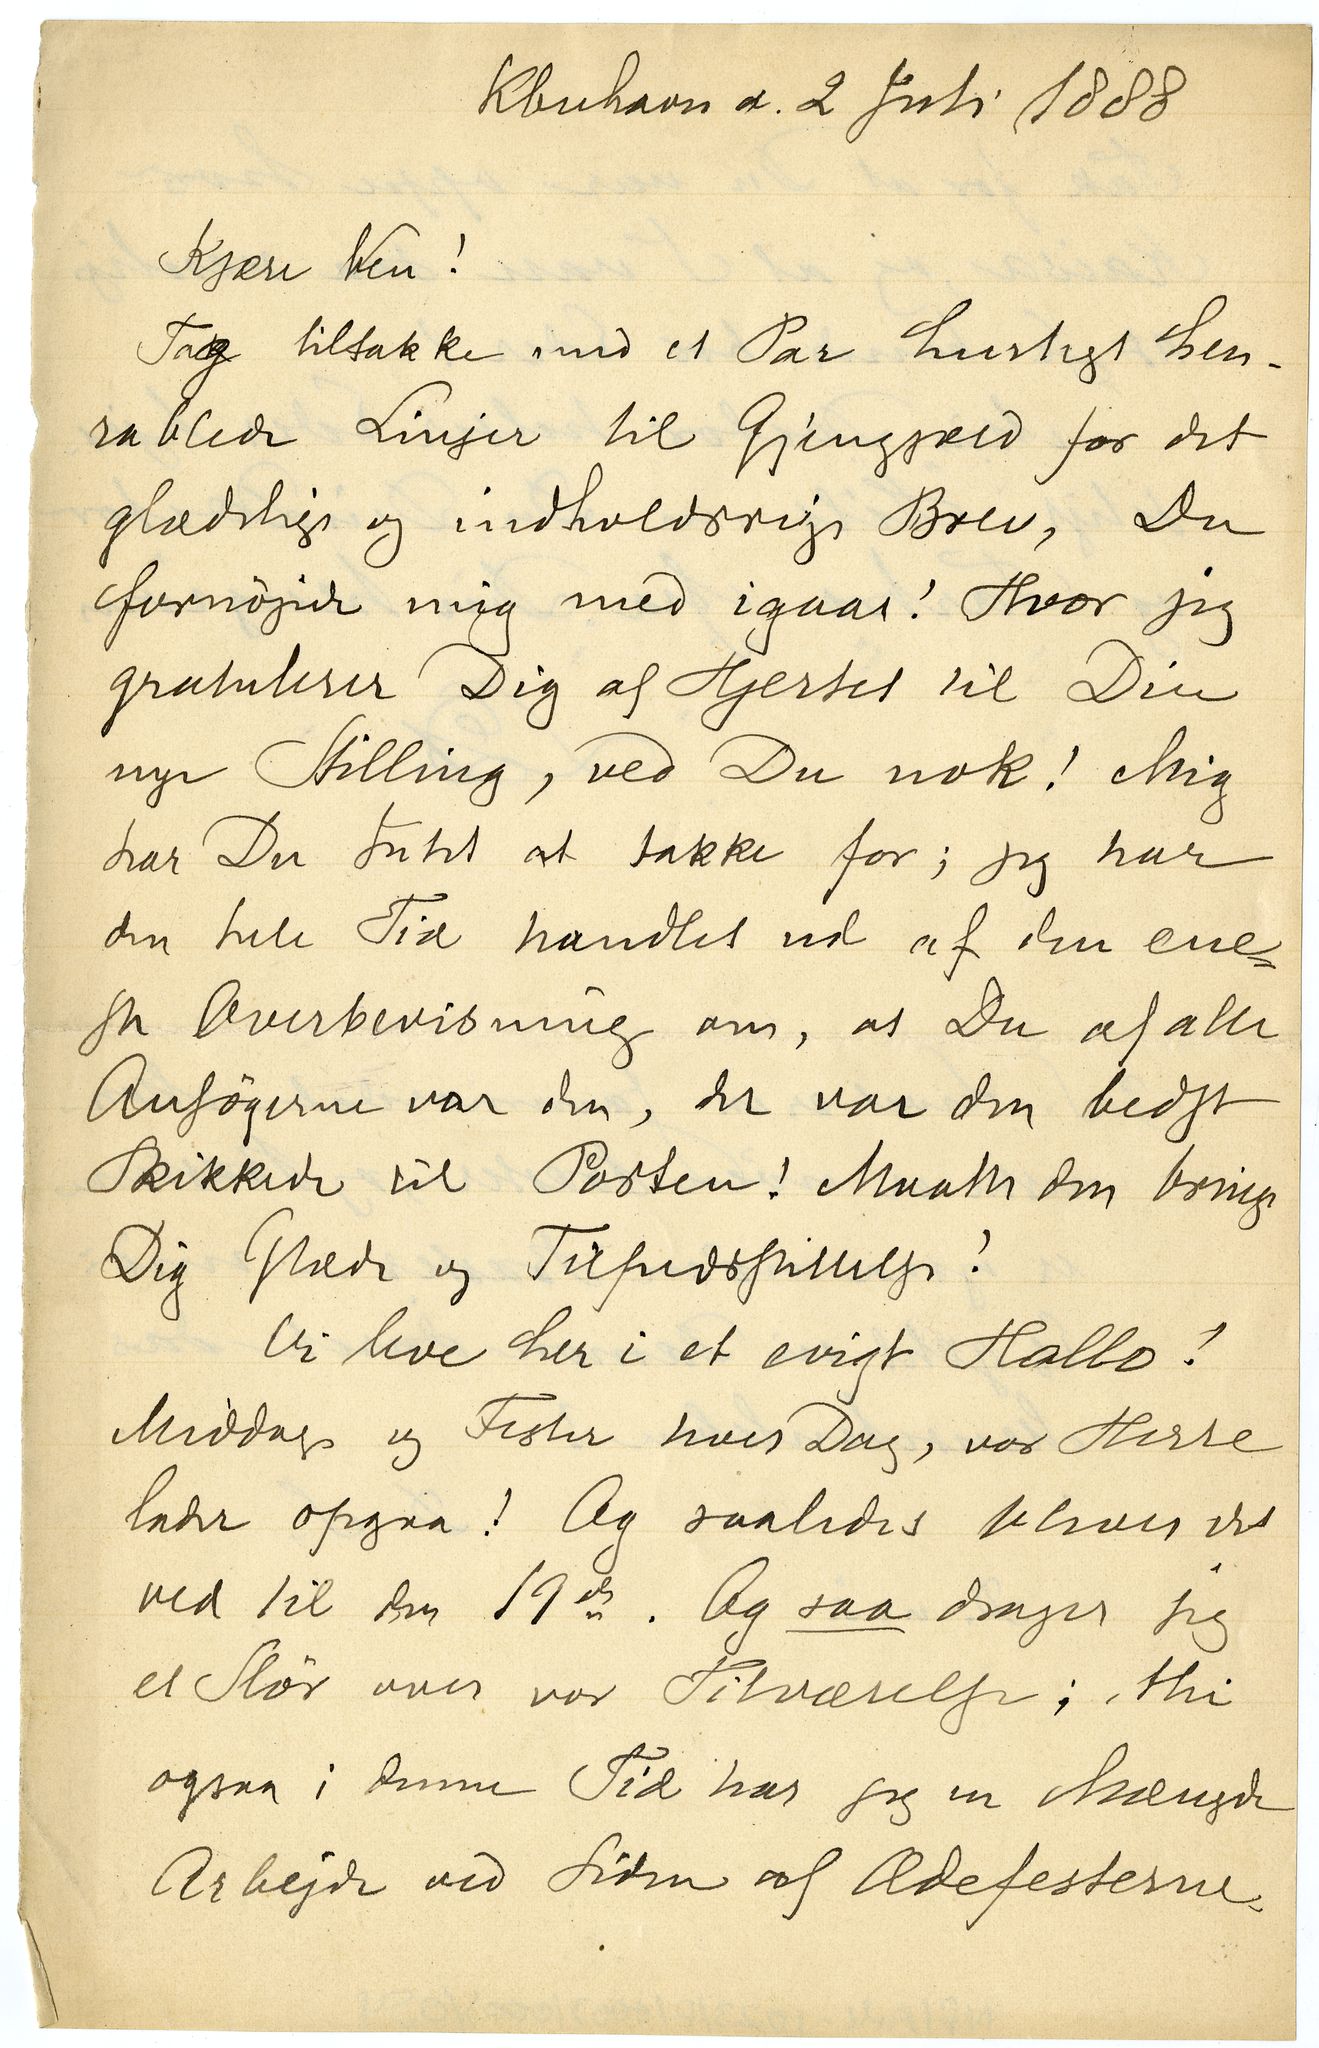 Kbenhavn d. 2 Juli 1888
Kjære Ven!
Tag tiltakke med et Par hurtigt hen-
rablede Linjer til Gjengjæld for det
glædelige og indholdsrige Brev, Du
fornöjede mig med igaar! Hvor jeg
gratulerer Dig af Hjertet til Din
nye Stilling, ved Du nok! Mig
har Du Intet at takke for; jeg har
den hele Tid handlet ud af den ene-
ste Overbevisning om, at Du af alle
Ansögerne var den, der var den bedst
skikkede til Posten! Maatte den bringe
Dig Glæde og Tilfredsstillelse!
Vi leve her i et evigt Hallo!
Middage og Fester hver Dag, vor Herre
lader opgaa! Og saaledes bliver det
ved til den 19de. Og saa drager jeg
et Slör over vor Tilværelse; thi
ogsaa i denne Tid har jeg en Mængde
Arbejde ved Siden af Ædefesterne.